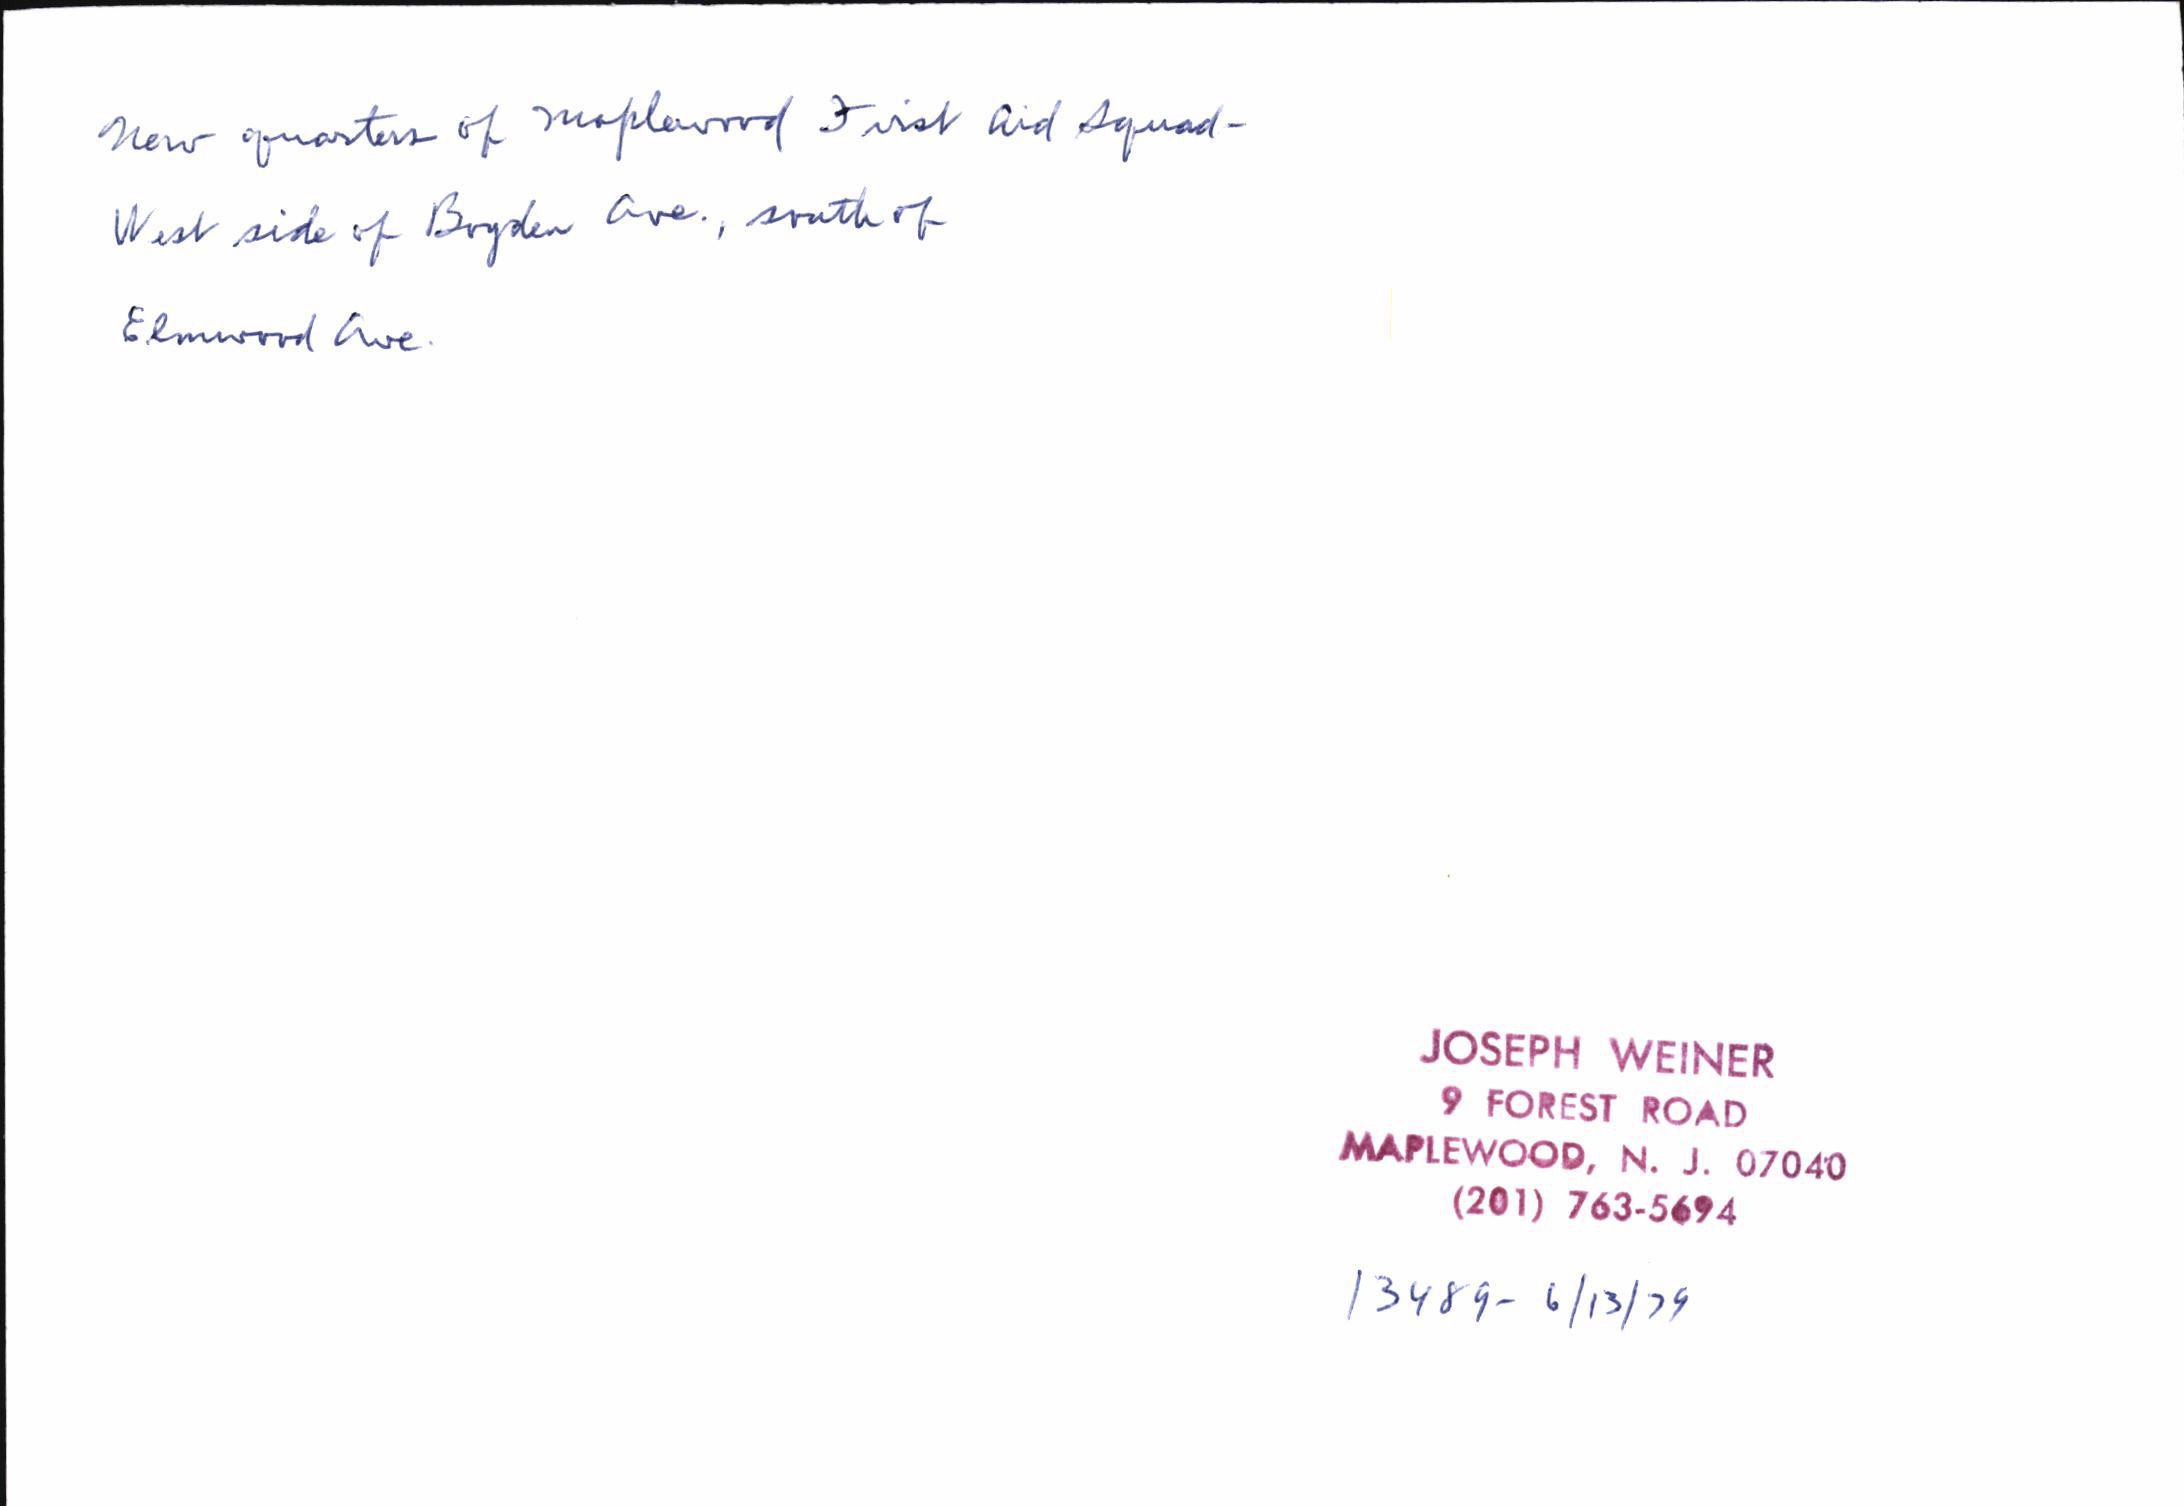 New quarters of Maplewood First Aid Squad-
West side of Boyden Ave., south of
Elmwood Ave.
JOSEPH WEINER
9 FOREST ROAD
MAPLEWOOD, N. J. 07040
(201) 763-5694
13489- 6/13/79